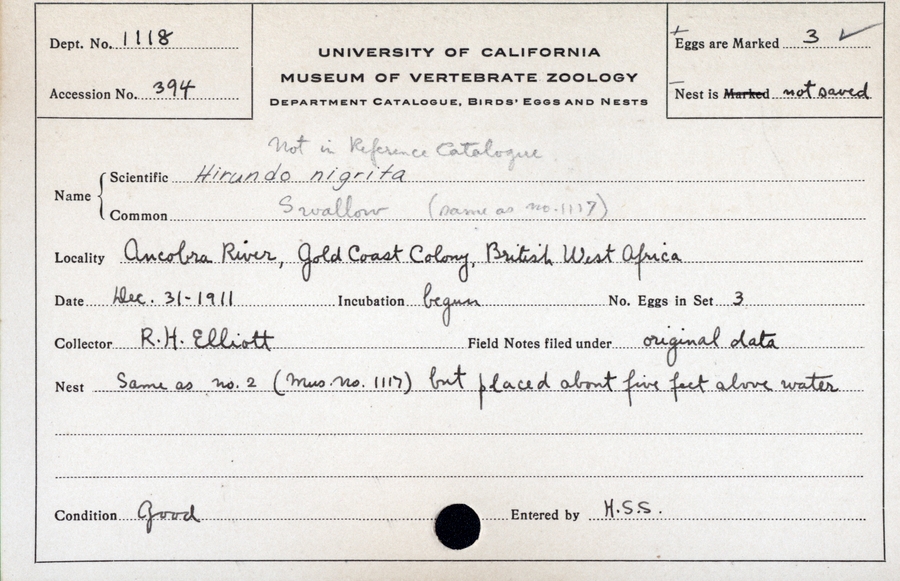 Dept. No. 1118
Accession No. 394
UNIVERSITY OF CALIFORNIA
MUSEUM OF VERTEBRATE ZOOLOGY
DEPARTMENT CATALOGUE, BIRDS' EGGS AND NESTS
Eggs are Marked 3 ✓
Nest is Marked not saved
Not in Reference Catalogue
Name
Scientific Hirundo nigrita
Common Swallow (same as no. 1117)
Locality Ancobra River, Gold Coast Colony, British West Africa
Date Dec. 31-1911 Incubation begun No. Eggs in Set 3
Collector R.H. Elliott Field Notes filed under original data
Nest Same as no. 2 (Mus. no. 1117) but placed about five feet above water
Condition Good Entered by H.S.S.